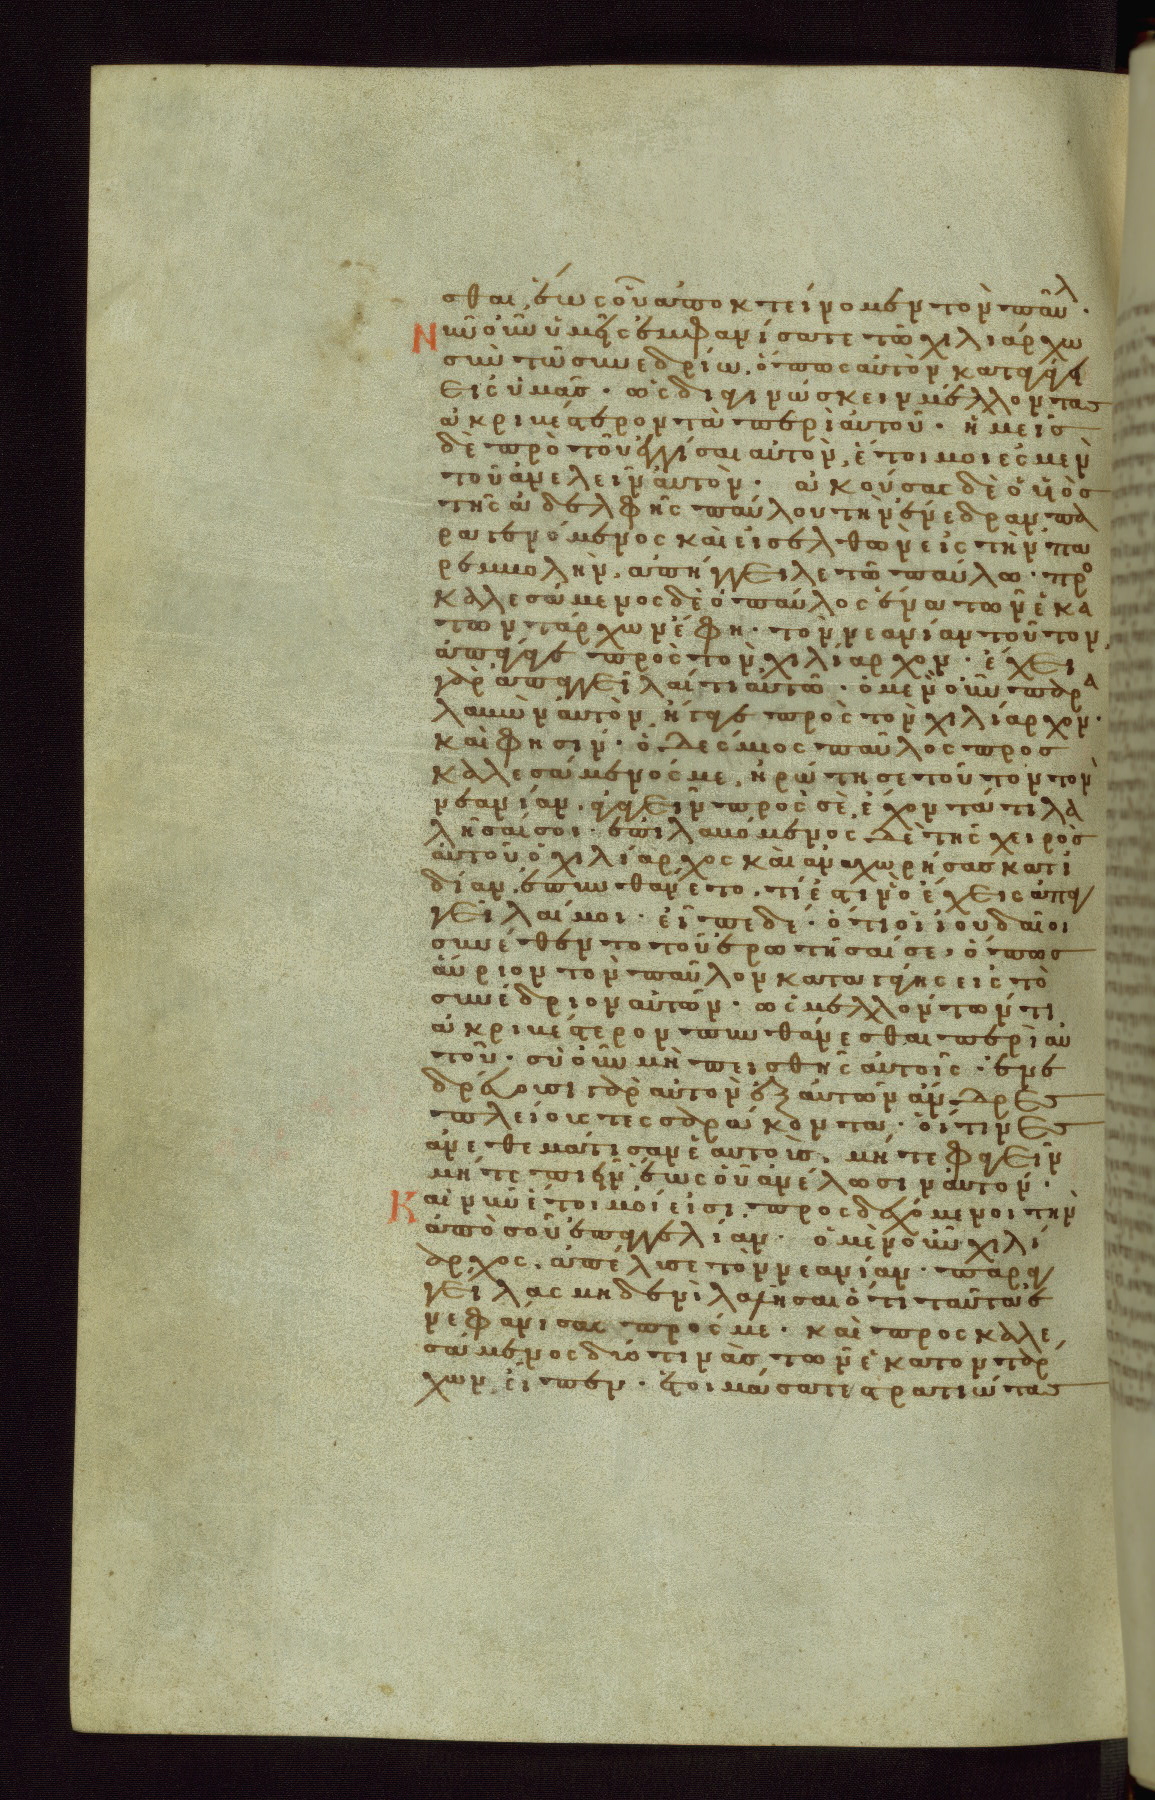 σθαι, ἕως οὗ ἀποκτείνομεν τὸν παῦλ.
Νῦν οὖν ὑμεῖς ἐμφανίσατε τῶ χιλιάρχω
σὺν τῶ συνεδρίω. ὅπως αὐτὸν καταγάγη
εἰς ὑμᾶς. ὡς διαγινώσκειν μέλλοντας
ἀκριβέστερον τὰ περὶ αὐτοῦ. ἡμεῖς
δὲ πρὸ τοῦ ἐγγίσαι αὐτὸν, ἕτοιμοι ἐσμὲν
τοῦ ἀνελεῖν αὐτόν. ἀκούσας δὲ ὁ υἱὸς
τῆς ἀδελφῆς παύλου τὴν ἐνέδραν, πα
ραγενόμενος καὶ εἰσελθὼν εἰς τὴν πα
ρεμβολὴν, ἀπήγγειλε τῶ παύλω. προ
καλεσάμενος δὲ ὁ παῦλος ἕνα τῶν ἑκα
τοντάρχων ἔφη. τὸν νεανίαν τοῦτον
ἀπάγαγε πρὸς τὸν χιλίαρχον. ἔχει
γὰρ ἀπαγγεῖλαί τι αὐτῶ. ὁ μὲν οὖν παρα
λαβὼν αὐτὸν, ἤγαγε πρὸς τὸν χιλίαρχον.
καὶ φησίν. ὁ δέσμιος παῦλος προσ
καλεσάμενός με, ἠρώτησε τοῦτον τὸν
νεανίαν, ἀγαγεῖν πρὸς σὲ, ἔχοντά τι λα
λῆσαί σοι. ἐπιλαβόμενος δὲ τῆς χειρὸς
αὐτοῦ ὁ χιλίαρχος καὶ ἀναχωρήσας κατι
δίαν, ἐπυνθάνετο. τί ἐστιν ὃ ἔχεις ἀπαγ
γεῖλαί μοι. εἶπε δέ. ὅτι οἱ ἰουδαῖοι
συνέθεντο τοῦ ἐρωτῆσαί σε, ὅπως
αὔριον τὸν παῦλον καταγάγης εἰς τὸ
συνέδριον αὐτῶν. ὡς μέλλοντών τι
ἀκριβέστερον πυνθάνεσθαι περὶ αὐ
τοῦ. σὺ οὖν μὴ πεισθῆς αὐτοῖς. ἐνε
δρεύουσι γὰρ αὐτὸν ἐξ αὐτῶν ἄνδρες
πλείους τεσσαράκοντα. οἵτινες
ἀνεθεμάτισαν ἑαυτοὺς, μήτε φαγεῖν
μήτε πιεῖν ἕως οὗ ἀνέλωσιν αὐτόν.
Καὶ νῦν ἕτοιμοί εἰσι, προσδεχόμενοι τὴν
ἀπὸ σοῦ ἐπαγγελίαν. ὁ μὲν οὖν χιλί
αρχος, ἀπέλυσε τὸν νεανίαν. παραγ
γείλας μηδενὶ λαλῆσαι ὅτι ταῦτα ἐ
νεφάνισας πρός με. καὶ προσκαλε
σάμενος δύο τινὰς τῶν ἑκατοντάρ
χων, εἶπεν. ἑτοιμάσατε στρατιώτας